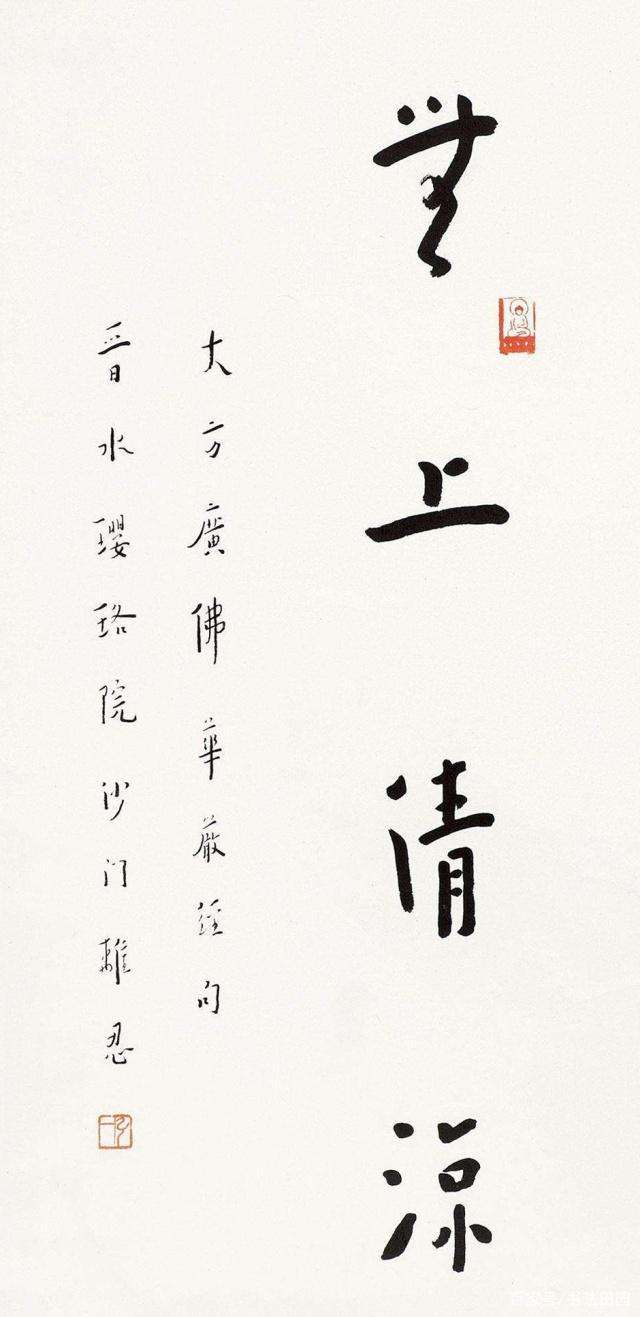 無上清涼
大方廣佛華嚴經句
晉水瓔珞院沙门離忍